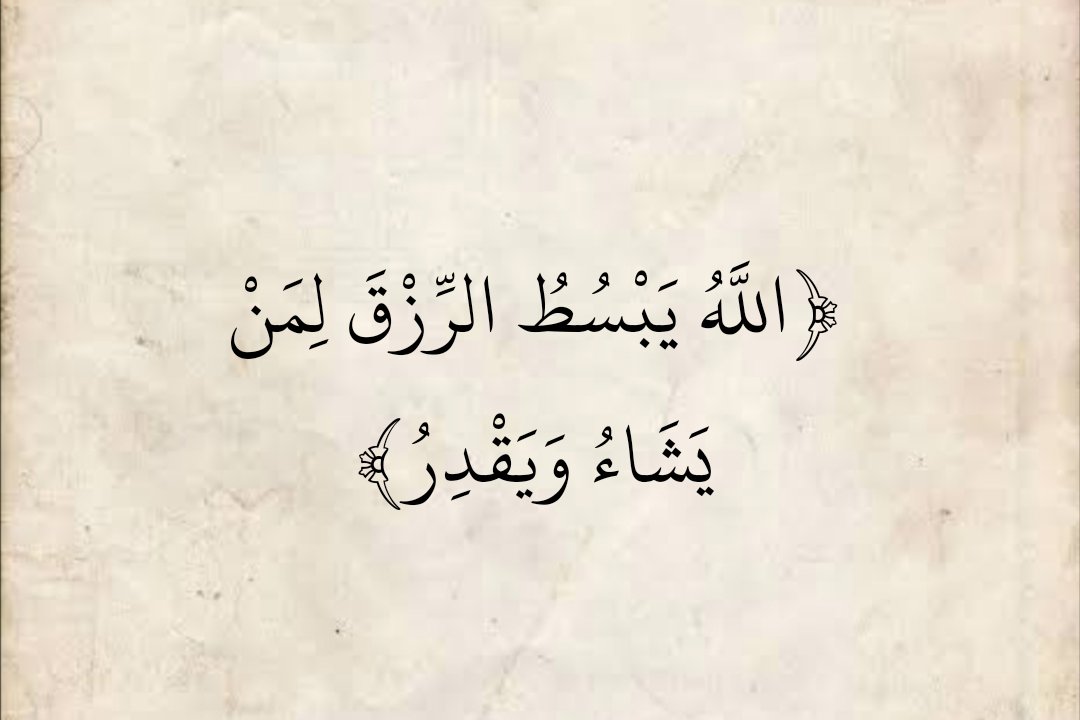 ﴿اللَّهُ يَبْسُطُ الرِّزْقَ لِمَنْ
يَشَاءُ وَيَقْدِرُ﴾